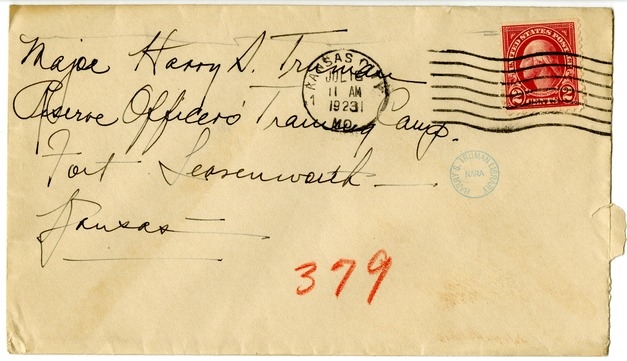 Major Harry S. Truman
Reserve Officers' Training Camp.
Fort Leavenworth
Kansas
KANSAS CITY
JUL 16
11 AM
1923
MO.
UNITED STATES POSTAGE
2 CENTS 2
HARRY S. TRUMAN LIBRARY
NARA
379